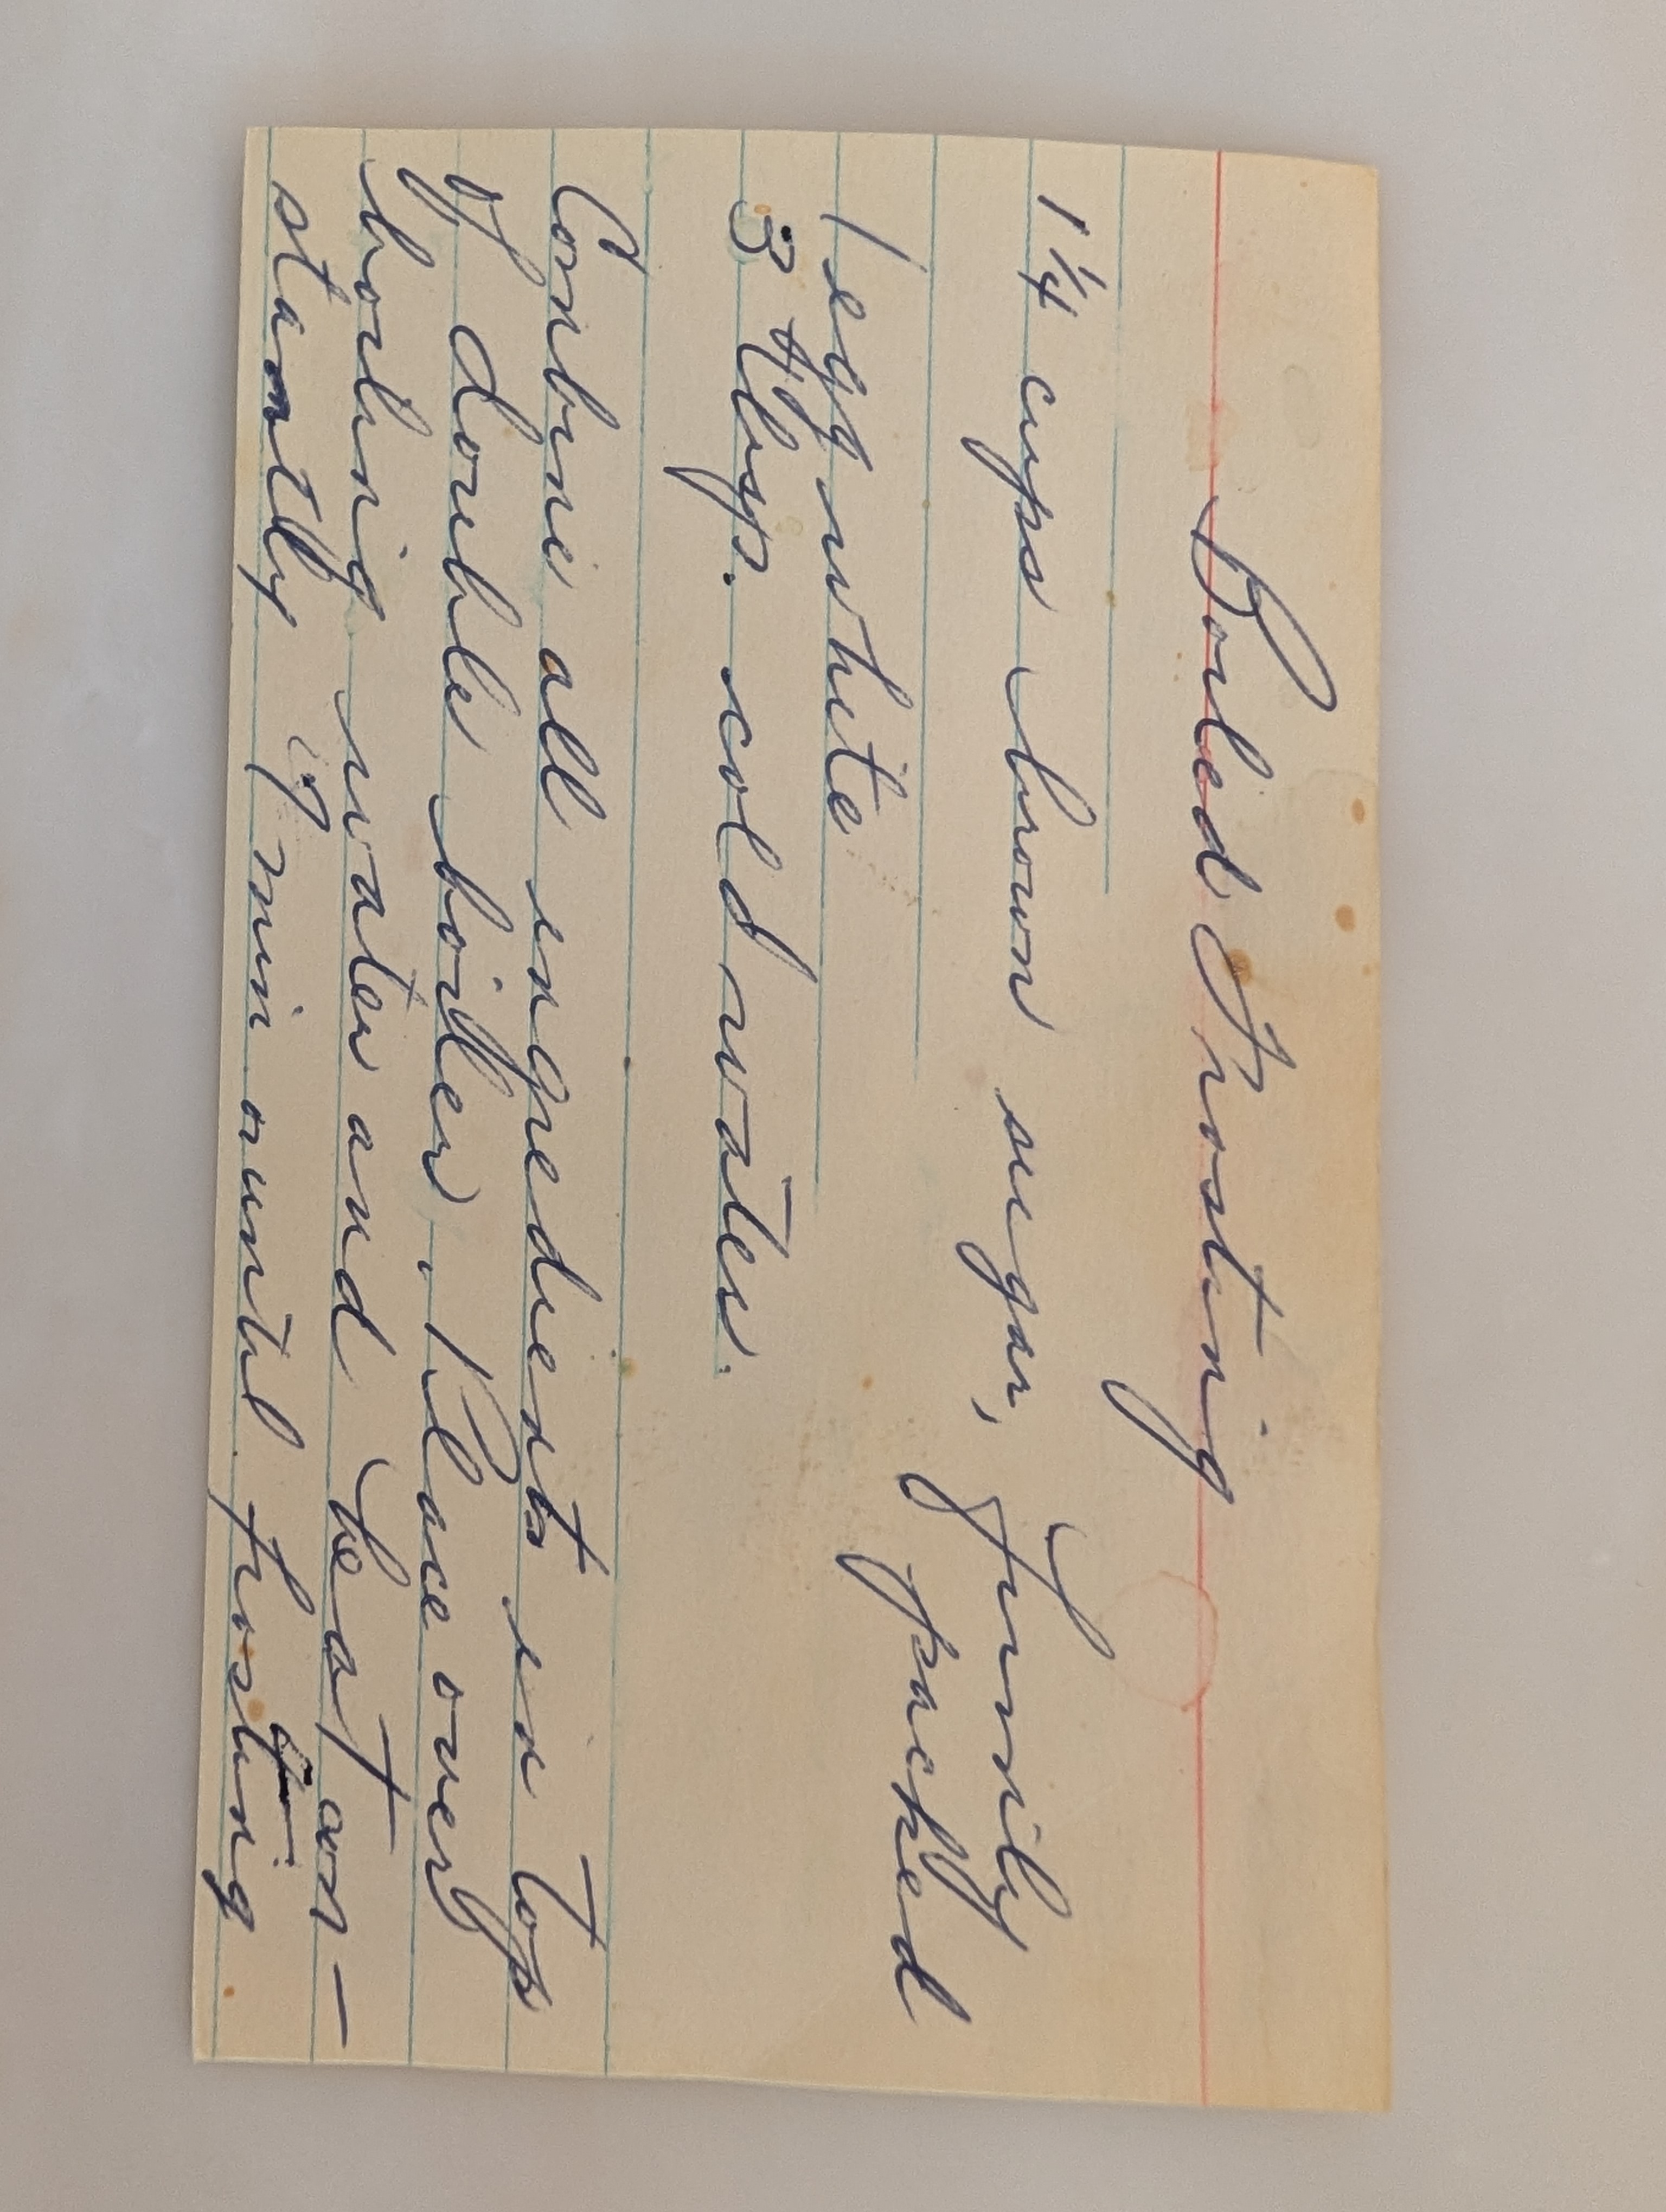 Boiled Frosting
1 1/4 cups brown sugar, firmily
packed
1 egg white
3 tbsp. cold water.
Conbine all ingredients in top
of double boiler. Place over
boiling water and beat con-
stantly 7 min or until frosting